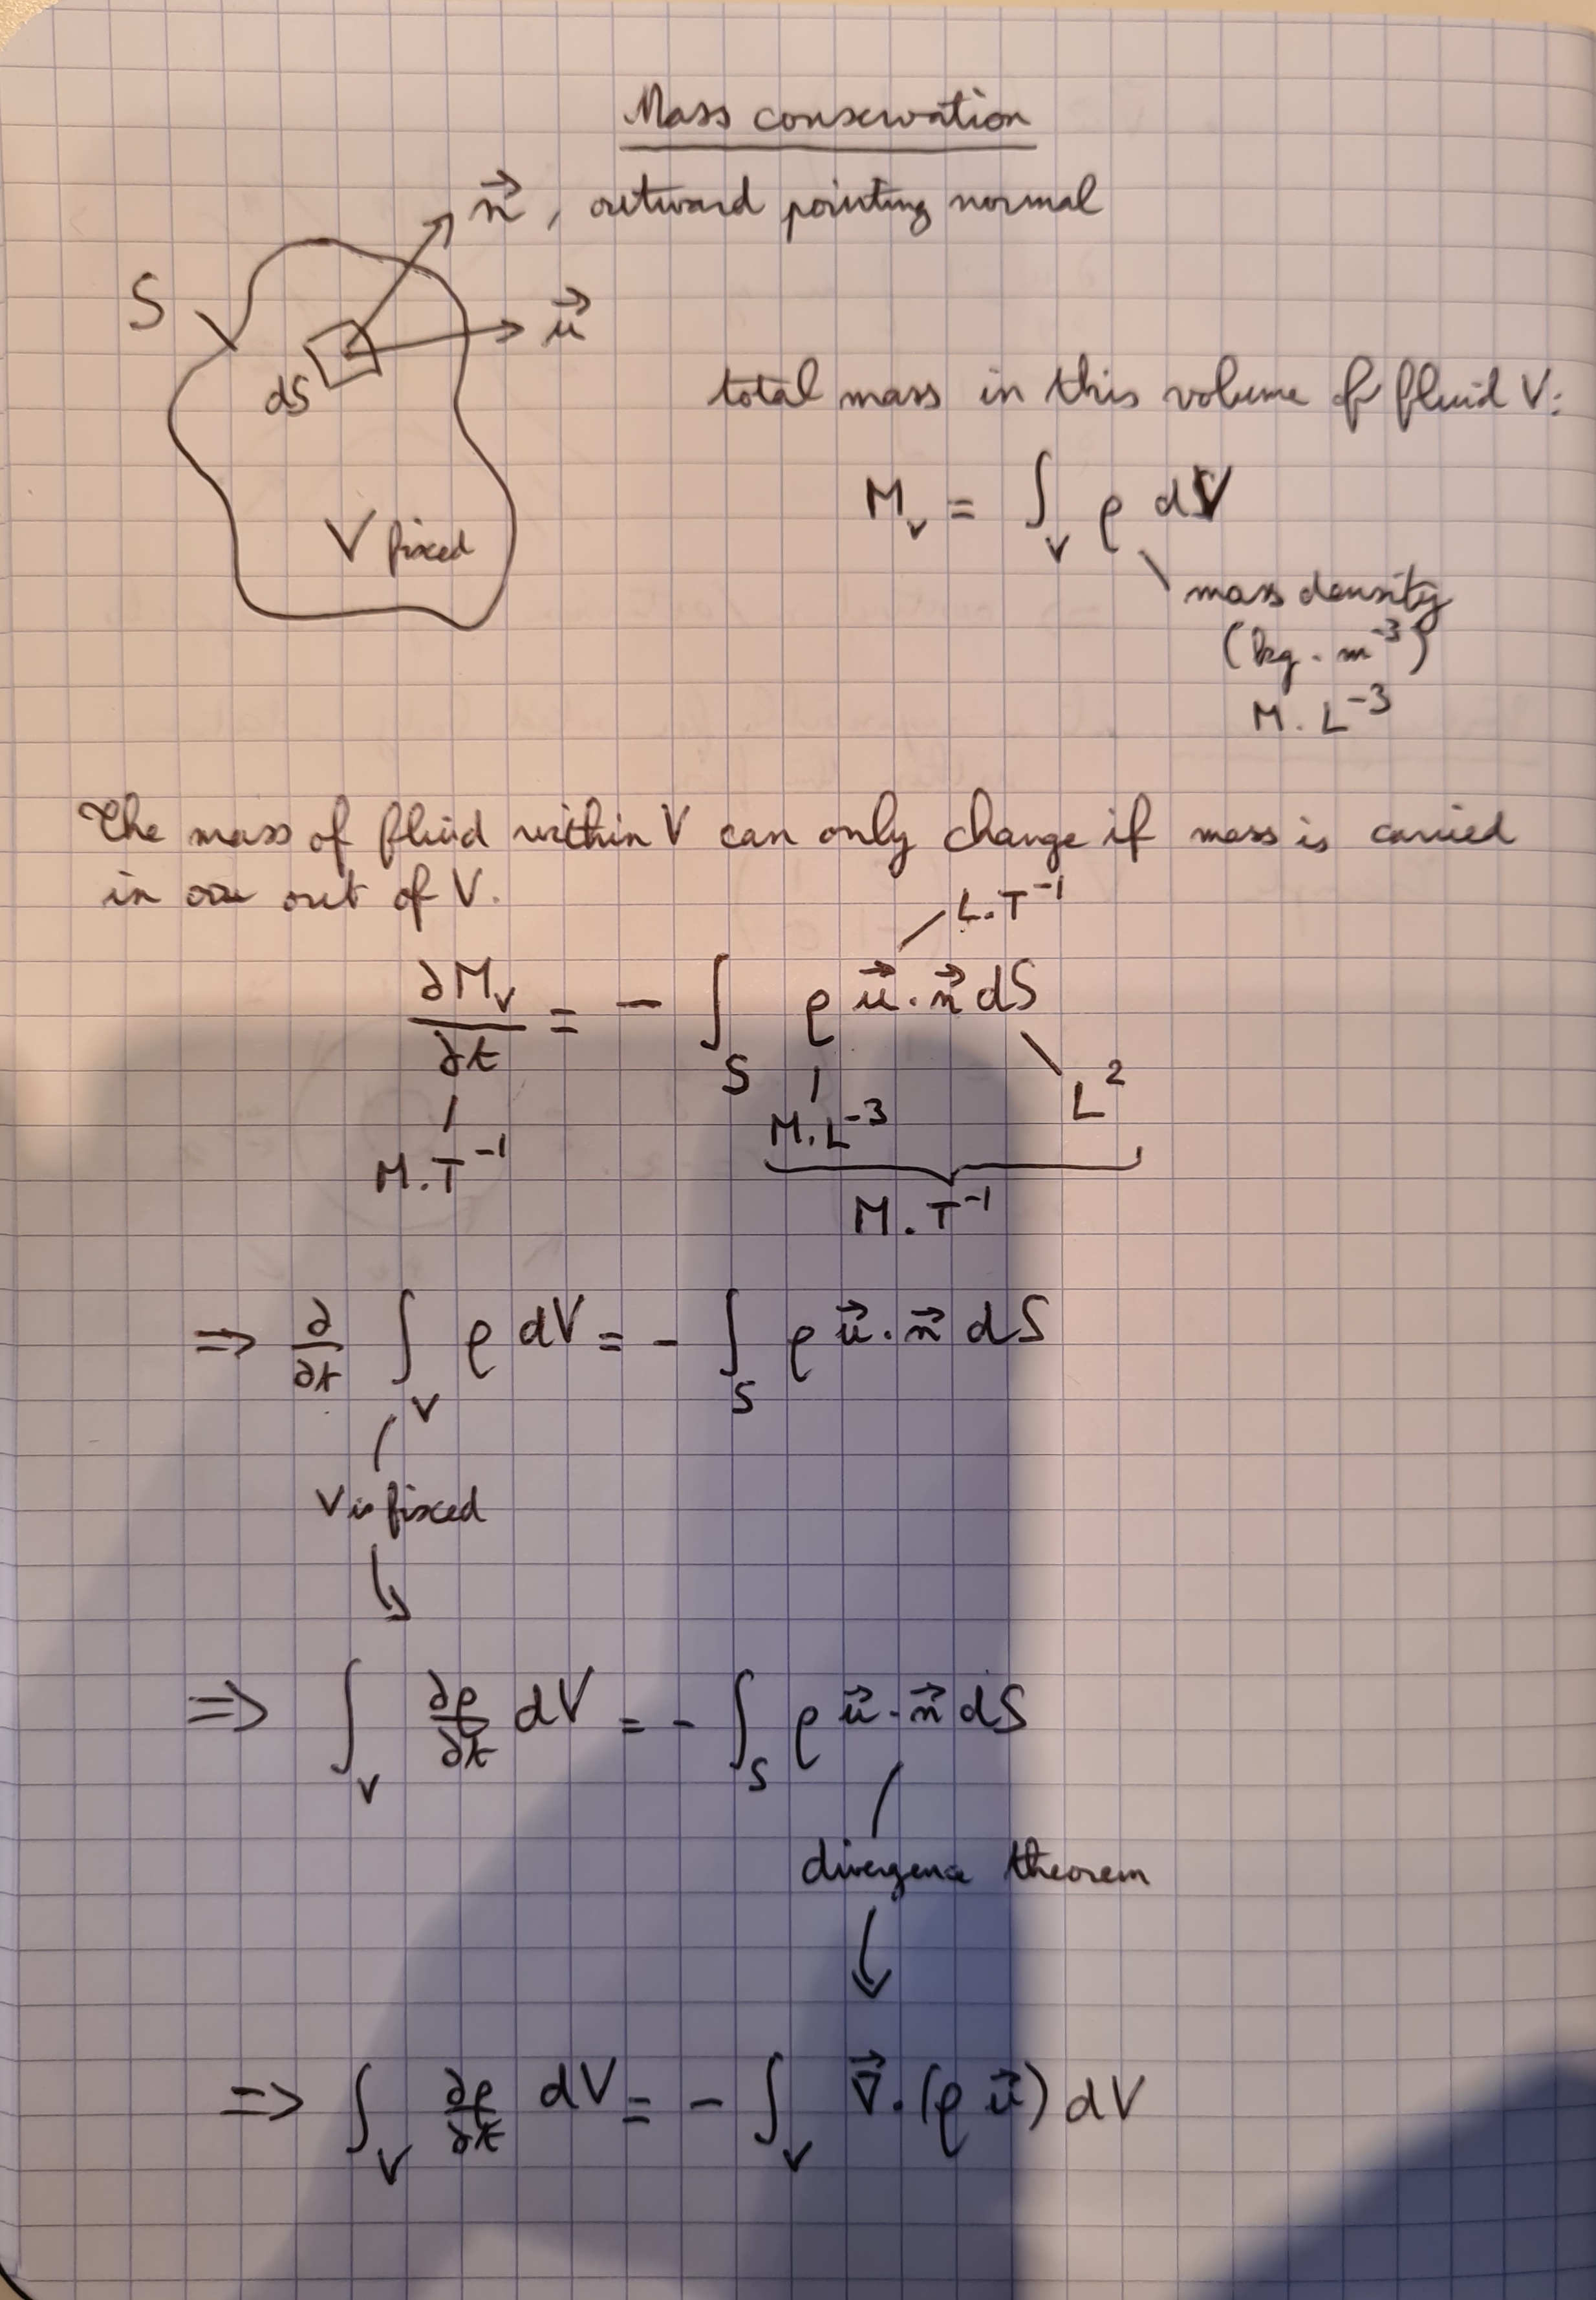 Mass conservation
n⃗, outward pointing normal
S
u⃗
dS
total mass in this volume of fluid V:
M_v = ∫_V ρ dV
V fixed
mass density
(kg . m⁻³)
M . L⁻³
The mass of fluid within V can only change if mass is carried
in or out of V.
L.T⁻¹
∂M_v/∂t = - ∫_S ρ u⃗ . n⃗ dS
M.T⁻¹
M.L⁻³
L²
M . T⁻¹
=> ∂/∂t ∫_V ρ dV = - ∫_S ρ u⃗ . n⃗ dS
V is fixed
=> ∫_V ∂ρ/∂t dV = - ∫_S ρ u⃗ . n⃗ dS
divergence theorem
=> ∫_V ∂ρ/∂t dV = - ∫_V ∇⃗ . (ρ u⃗) dV